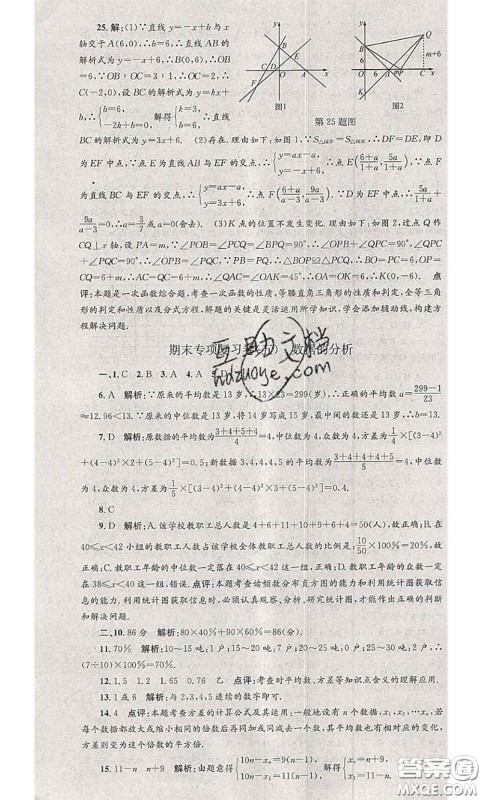 25. 解:(1)∵直线 y=-x+b 与 x
轴交于 A(6,0),∴-6+b=0,∴b=6,∴AB
的解析式为 y=-x+6,∴B(0,6),∴OB=
6.∵OB:OC=3:1,∴OC=2,∴
C(-2,0),设 BC 的解析式为 y=kx+
b,∴{b=6, -2k+b=0, 解得{k=3, b=6, ∴直线
图1
图2
第25题图
BC 的解析式为 y=3x+6. (2)存在.理由如下:如图1.∵S△BDF=S△BDE,∴DF=DE,即 D
为 EF 中点,∵点 E 为直线 AB 与 EF 的交点,∴{y=ax-a, y=-x+6, ∴点 E(6+a/a+1, 5a/a+1).∵点 F
为直线 BC 与 EF 的交点,∴{y=ax-a, y=3x+6, ∴点 F(6+a/a-3, 9a/a-3).∵D 为 EF 中点,∴5a/1+a+
9a/a-3=0,∴a=3/7或 a=0(舍去). (3)K 点的位置不发生变化.理由如下:如图2,过点 Q 作
CQ⊥x 轴,设 PA=m,∵∠POB=∠PCQ=∠BPQ=90°,∴∠OPB+∠QPC=90°,
∠QPC+∠PQC=90°,∴∠OPB=∠PQC.∵PB=PQ,∴△BOP≌△PCQ,∴BO=PC=6,OP=
CQ=6+m,∴AC=QC=6+m,∴∠QAC=∠OAK=45°,∴OA=OK=6,∴K(0,-6). 点
评:本题是一次函数综合题,考查一次函数的性质,等腰直角三角形的性质和判定,全等三角形
的判定和性质以及方式方程,解题的关键是灵活运用所学知识,学会添加辅助线,构建
方程解决问题.
期末专项复习 数据的分析
一、1. C 2. B 3. C 4. A 5.
6. A 解析:∵原来的平均数是 13 岁,∴13×23=299(岁),∴正确的平均数 a=299-1/23
≈12.96<13.∵原来的中位数是 13 岁,将 14 岁写成 15 岁,最中间的数还是 13 岁,∴b=13.
7. D 解析:原数据的平均数为3+4+4+5/4=4,中位数为 4,众数为 4,方差为1/4×[(3-4)²
+(4-4)²×2+(5-4)²]=0.5;新数据的平均数为3+4+4+4+5/5=4,中位
数为 4,众数为 4,方差为1/5×[(3-4)²+(4-4)²×3+(5-4)²]=0.4.
8. C
9. D 解析:A. 该学校教职工总人数是 4+6+11+10+9+6+4=50(人),故正确;B. 在
40≤x<42 小组的教职工人数占该学校全体教职工总人数的比例为10/50×100%=20%,故
正确;C. 教职工年龄的中位数一定落在 40≤x<42 这一组,故正确;D. 教职工年龄的众数一定
在 38≤x<40 这一组,错误. 点评:本题考查读频数分布直方图的能力和利用统计图获取信
息的能力.利用统计图获取信息时,必须认真观察、分析、研究统计图,才能作出正确的判断
和解决问题.
二、10. 86分 解析:80×40%+90×60%=86(分).
11. 70% 解析:10~15 吨:1 户,0~5 吨:1 户,15~20 吨:1 户,25~30 吨:2 户,∴
(7÷10)×100%=70%.
12. 1.5 1.2 1.65 0.76 乙 点评:考查对平均数、方差等知识点含义的理解应用.
13. 1或6 解析:与 2,3,4,5 连续的数字即可.
14. 4 点评:本题考查方差的计算公式及其运用:一般地设有 n 个数据,x₁,x₂,…xₙ,若
每个数据都放大或缩小相同的倍数后再同加或同减去一个数,其平均数也有相对应的变化,
方差则变为这个倍数的平方倍.
15. 11-n n+9 解析:由题意得{10n-xₙ=9(n-1), 10n-x₁=11(n-1), 解得{xₙ=n+9, x₁=11-n.
互助文档
huzuoye.com
答案圈
MXQE.COM